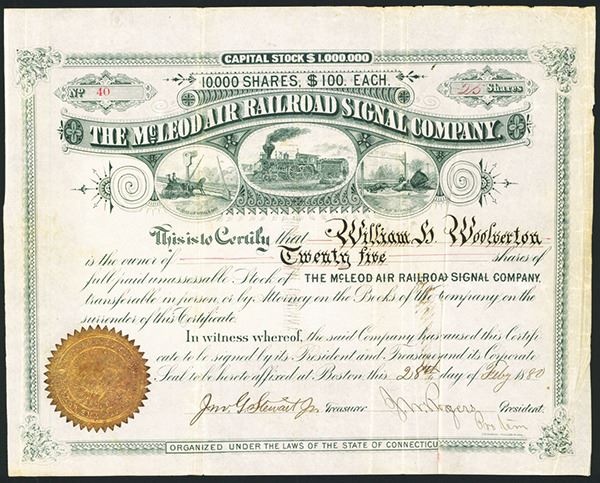 CAPITAL STOCK $1.000.000
10000 SHARES, $100. EACH.
No. 40
25 Shares
THE McLEOD AIR RAILROAD SIGNAL COMPANY.
This is to Certify that William H. Woolverton
is the owner of Twenty five shares of
full paid unassessable Stock of THE McLEOD AIR RAILROAD SIGNAL COMPANY,
transferable in person, or by Attorney on the Books of the Company on the
surrender of this Certificate.
In witness whereof, the said Company has caused this Certifi
cate to be signed by its President and Treasurer and its Corporate
Seal to be hereto affixed at Boston this 28th day of Feby 1880
Jno. G. Stewart Jr. Treasurer Rogers President.
Pro tem
ORGANIZED UNDER THE LAWS OF THE STATE OF CONNECTICUT